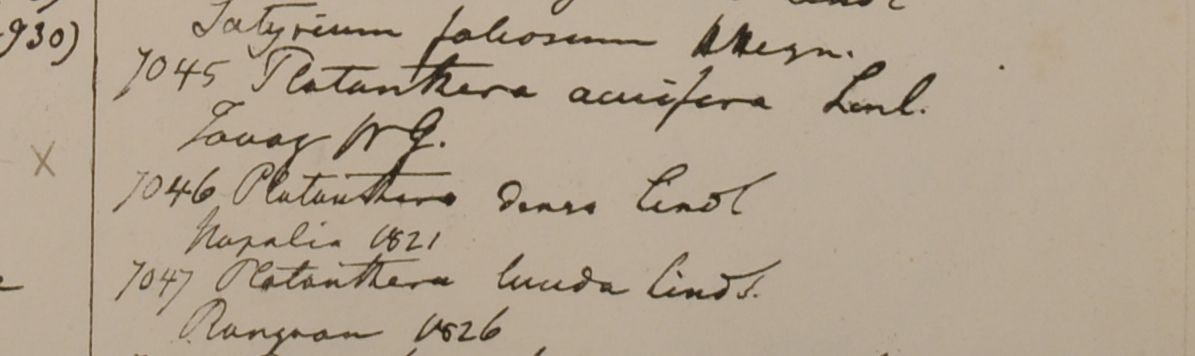 930)
Satyrium foliosum
7045 Platanthera acuifera Lindl.
Tavoy WG.
X
7046 Platanthera densa Lindl
Napalia 1821
7047 Platanthera lucida Lindl.
Rangoon 1826